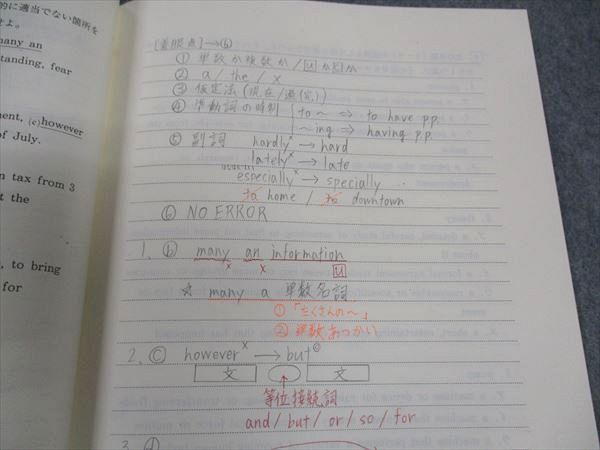 的に適当でない箇所を
せよ。
many an
standing, fear
ment, (c)however
of July.
n tax from 3
t the
, to bring
for
[着眼点]→⑥
① 単数か複数か/Uか
② a / the / x
③ 仮定法(現在/過(完))
④ 準動詞の時制 to ~ ⇒ to have p.p.
~ing ⇒ having p.p.
⑤ 副詞 hardly x → hard
lately x → late
especially x → specially
to home / to downtown
⑥ NO ERROR
1. ⓑ many an information
x x U
☆ many a 単数名詞
① 「たくさんの~」
② 単数あつかい
2. ⓒ however x → but
文 文
等位接続詞
and / but / or / so / for
3. ⓓ